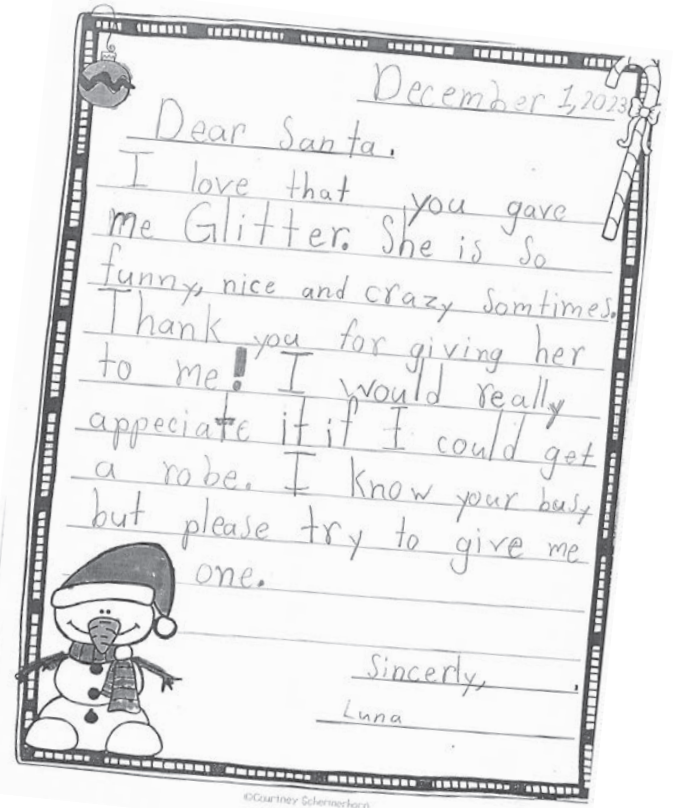 December 1, 2023
Dear Santa.
I love that you gave
me Glitter. She is so
funny, nice and crazy somtimes.
Thank you for giving her
to me! I would really
appeciate it if I could get
a robe. I know your busy
but please try to give me
one.
Sincerly,
Luna
©Courtney Schermerhorn